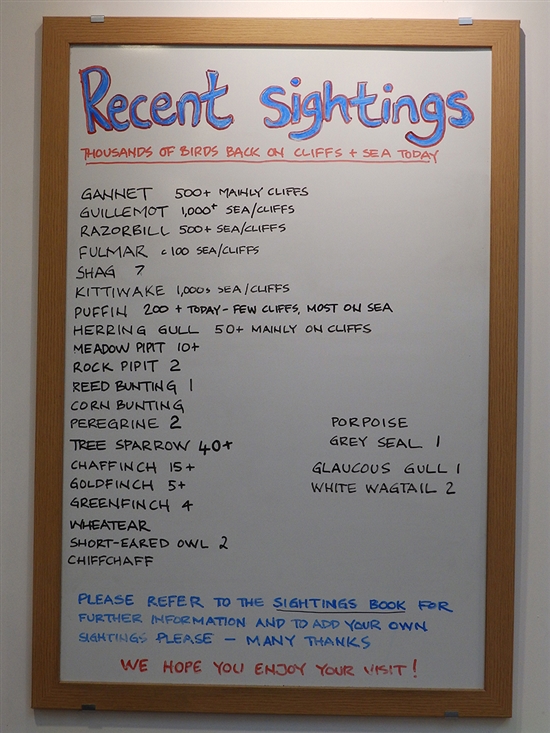 Recent Sightings
THOUSANDS OF BIRDS BACK ON CLIFFS + SEA TODAY
GANNET 500+ MAINLY CLIFFS
GUILLEMOT 1,000+ SEA/CLIFFS
RAZORBILL 500+ SEA/CLIFFS
FULMAR c100 SEA/CLIFFS
SHAG 7
KITTIWAKE 1,000s SEA/CLIFFS
PUFFIN 200 + TODAY - FEW CLIFFS, MOST ON SEA
HERRING GULL 50+ MAINLY ON CLIFFS
MEADOW PIPIT 10+
ROCK PIPIT 2
REED BUNTING 1
CORN BUNTING
PEREGRINE 2
TREE SPARROW 40+
CHAFFINCH 15+
GOLDFINCH 5+
GREENFINCH 4
WHEATEAR
SHORT-EARED OWL 2
CHIFFCHAFF
PORPOISE
GREY SEAL 1
GLAUCOUS GULL 1
WHITE WAGTAIL 2
PLEASE REFER TO THE SIGHTINGS BOOK FOR
FURTHER INFORMATION AND TO ADD YOUR OWN
SIGHTINGS PLEASE - MANY THANKS
WE HOPE YOU ENJOY YOUR VISIT!